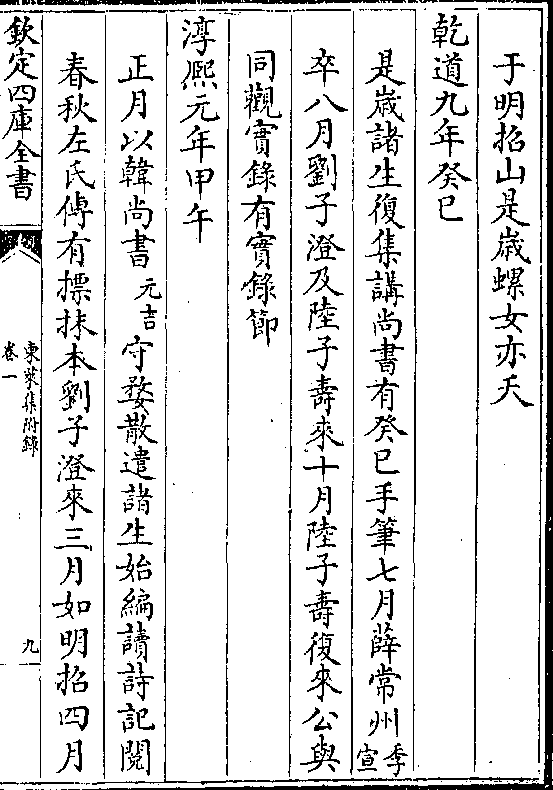 于明招山是歳螺女亦夭
乾道九年癸巳
是歳諸生復集講尚書有癸巳手筆七月薛常州季宣
卒八月劉子澄及陸子壽來十月陸子壽復來公與
同觀實錄有實錄節
淳熈元年甲午
正月以韓尚書元吉守婺散遣諸生始編讀詩記閱
春秋左氏傳有摽抹本劉子澄來三月如明招四月
欽定四庫全書
東萊集附錄
卷一
九